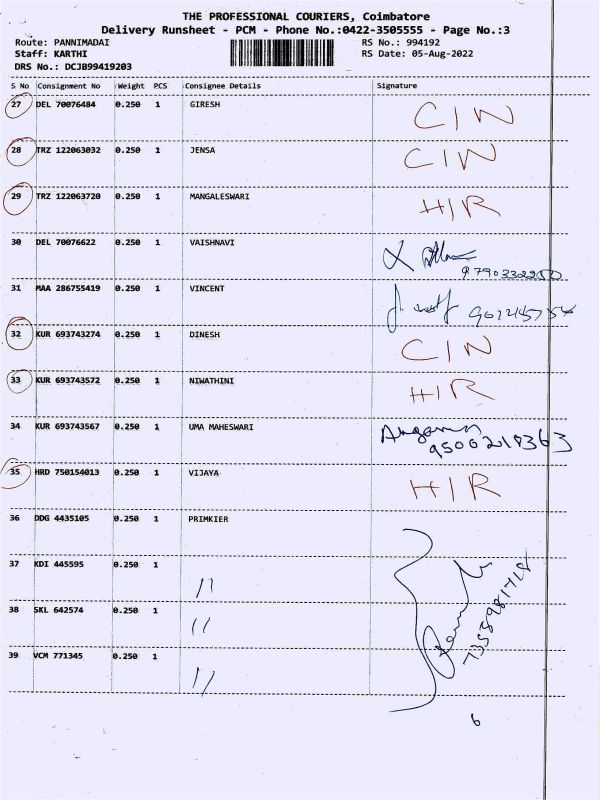 THE PROFESSIONAL COURIERS, Coimbatore
Delivery Runsheet - PCM - Phone No.:0422-3505555 - Page No.:3
Route: PANNIMADAI RS No.: 994192
Staff: KARTHI RS Date: 05-Aug-2022
DRS No.: DCJB99419203
S No Consignment No Weight PCS Consignee Details Signature
27 DEL 70076484 0.250 1 GIRESH CIN
28 TRZ 122063032 0.250 1 JENSA CIN
29 TRZ 122063720 0.250 1 MANGALESWARI HIR
30 DEL 70076622 0.250 1 VAISHNAVI
31 MAA 286755419 0.250 1 VINCENT
32 KUR 693743274 0.250 1 DINESH CIN
33 KUR 693743572 0.250 1 NIWATHINI HIR
34 KUR 693743567 0.250 1 UMA MAHESWARI
9500218363
35 HRD 750154013 0.250 1 VIJAYA HIR
36 DDG 4435105 0.250 1 PRIMKIER
37 KDI 445595 0.250 1 //
38 SKL 642574 0.250 1 //
39 VCM 771345 0.250 1 //
6